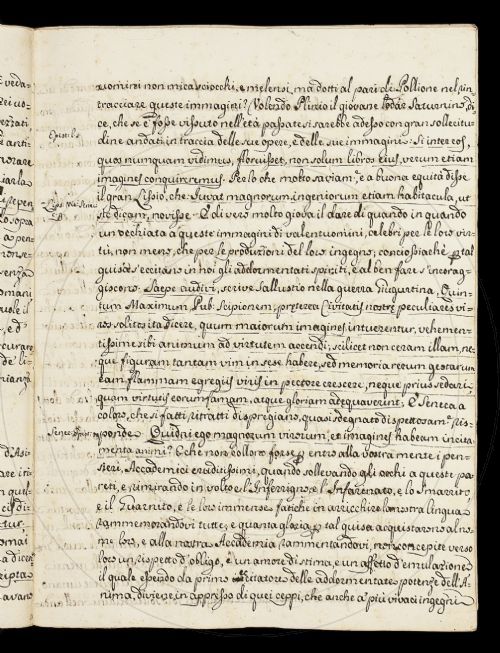 uomini non mica sciocchi, e melensi, ma dotti al pari di Pollione nel rin=
tracciare queste immagini? Volendo Plinio il giovane lodar Saturnino, di=
ce, che se e' fosse vissuto nell'età passate si sarebbe adesso con gran sollecitu=
dine andati in traccia delle sue opere, e delle sue immagini: Si inter eos,
quos numquam vidimus, floruisset, non solum libros eius, verum etiam
imagines conquireremus. Per lo che molto saviam.e, e a buona equità disse
il gran Lissio, che Iuvat magnorum ingeniorum etiam habitacula, ut
sic dicam, novisse. E di vero molto giova il dare di quando in quando
un'occhiata a queste immagini di valentuomini, celebri per le loro vir=
tù, non meno, che per le produzioni del loro ingegno; conciossiachè per tal
guisa s'eccitano in noi gli addormentati spiriti, e al ben fare s'incorag=
giscono. Saepe audivi, scrive Sallustio nella guerra Giugurtina, Quin=
tum Maximum Pub. Scipionem, praeterea Civitatis nostre peculiares vi=
ros solitos ita dicere, quum maiorum imagines intuerentur, vehemen=
tissime sibi animum ad virtutem accendi; scilicet non ceram illam, ne=
que figuram tantam vim in sese habere, sed memoria rerum gestarum
eam flammam egregiis viris in pectore crescere, neque prius sedari,
quam virtus eorum famam, atque gloriam adequaverit; E Seneca a
coloro, che sì fatti ritratti dispregiano, quasi sdegnato dispettosam.e ris=
ponde. Quidni ego magnorum virorum, et imagines habeam incita=
menta animi? E che non bollono forse entro alla vostra mente i pen=
sieri, Accademici eruditissimi, quando sollevando gli occhi a queste pa=
reti, e rimirando in volto e l'Inferrigno, e l'Infarinato, e lo Smarrito,
e il Guernito, e le loro immense fatiche in arricchire la nostra lingua
rammemorandovi tutte, e quanta gloria per tal guisa acquistarono al no=
me loro, e alla nostra Accademia rammentandovi, non concepite verso
loro un rispetto d'obligo, e un amore di stima, e un affetto d'emulazione
il quale essendo da prima eccitatore delle addormentate potenze dell'A=
nima, divenne in appresso di quei ceppi, che anche a' più vivaci ingegni
Epist. 16.